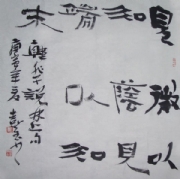 見微以
知萌見
端以知
末
韓非子說林上句